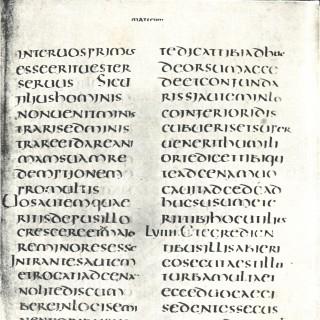 MATTHEUM
INTERUOSPRIMUS
ESSEERITUESTER
SERUUS SICUT
FILIUSHOMINIS
NONUENITMINIS
TRARISEDMINIS
TRAREETDAREANI
MAMSUAMRE
DEMPTIONEM
PROMULTIS
UOSAUTEMQUAE
RITISDEPUSILLO
CRESCERE
REMINORESESSE
INTRANTESAUTEM
ETROGATIADCENA
NOLITEDISCUM
BEREINLOCISEMI
TEDICATTIBIADHUC
DEORSUMACCE
DEETCONFUNDA
RISSIAUTEMINLO
COINFERIORIDIS
CUBUERISETSUPER
UENERITHUMILI
ORTEDICETTIBIQUI
TEADCENAMUO
CAUITACCEDEAD
HUCSUSUMETE
RITTIBIHOCUTILIUS
ETEGREDIEN
TIBUSILLISABHIERI
COSECUTAESTILLU
TURBAMULTAET
ECCEDUOCAECI
SEDENTESSECUS